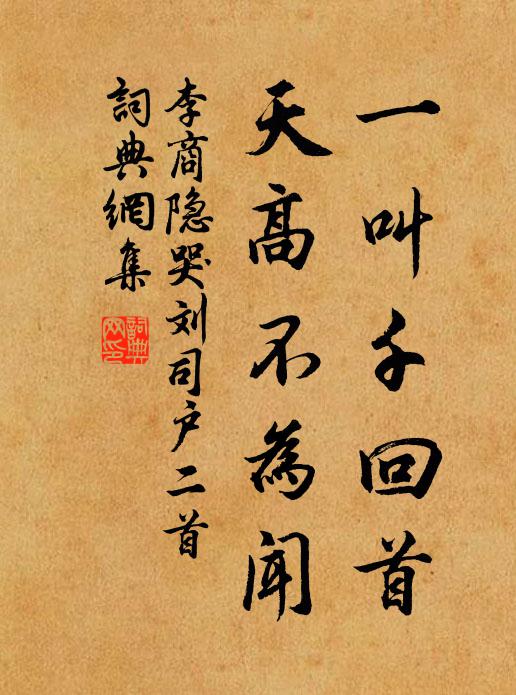 一叫千回首
天高不為闻
李商隐哭刘司户二首
詞典網集
詞典网印